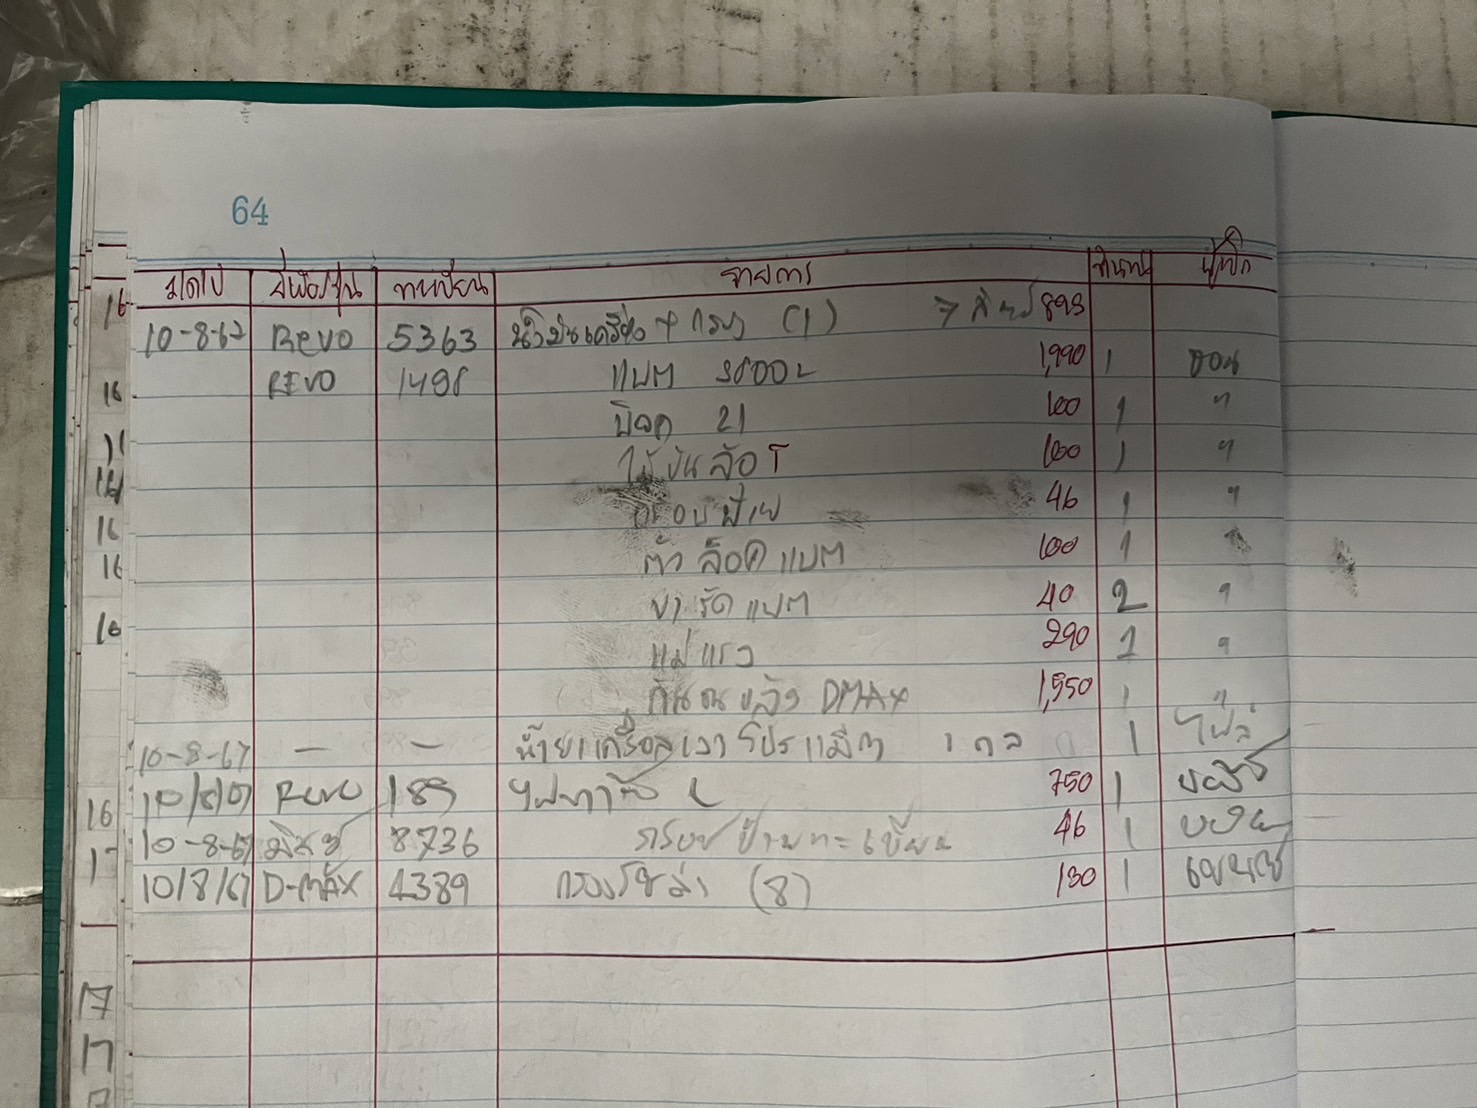 64
ว/ด/ป ยี่ห้อ/รุ่น ทะเบียน รายการ จำนวน ผู้เบิก
10-8-67 Revo 5363 น้ำมันเครื่อง + กรอง (1) 7 ลิตร 893
REVO 1498 แบต 3600L 1,990 1
บ๊อก 21 100 1 "
ไม้ขันล้อ T 100 1 "
กรอบป้าย 46 1 "
ตัวล็อคแบต 100 1 "
ขารัดแบต 40 2 "
แม่แรง 290 1 "
กันชนหลัง DMAX 1,550 1 "
10-8-67 — — 1
10/8/67 Revo 189 L 750 1
10-8-67 มิตซู 8736 กรอบป้ายทะเบียน 46 1
10/8/67 D-MAX 4389 กรองโซล่า (8) 130 1
16
16
11
16
16
16
16
16
17
17
17